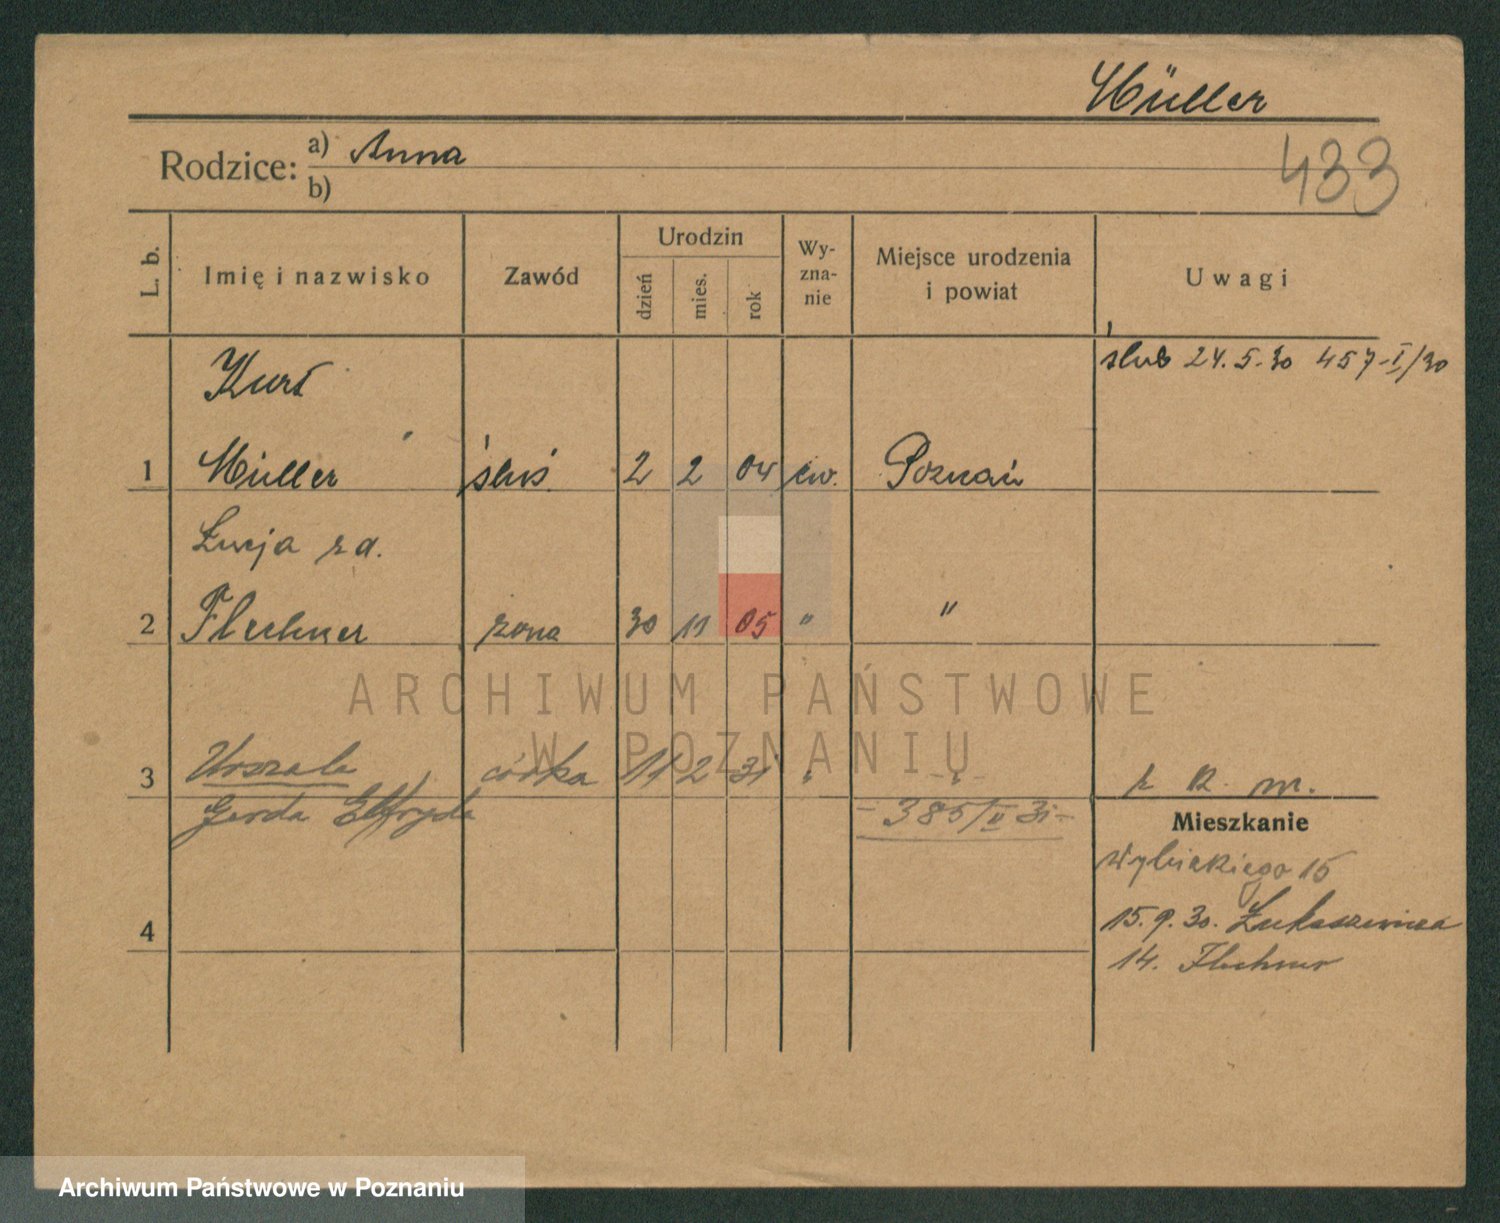 Müller
Rodzice: a) Anna
433
b)
L. b.
Imię i nazwisko
Zawód
Urodzin
dzień
mies.
rok
Wy-
zna-
nie
Miejsce urodzenia
i powiat
Uwagi
Kurt
ślub 24.5.30 457-I/30
1 Müller ślus 2 2 04 ew. Poznań
Łucja z d.
2 Flechner żona 30 11 05 " "
ARCHIWUM PAŃSTWOWE
W POZNANIU
3 Urszula córka 11 2 31 " "
Gerda Elfryda
-385/II 31-
Mieszkanie
Wybickiego 15
15.9.30. Łukaszewicza
14. Flechner
4
Archiwum Państwowe w Poznaniu